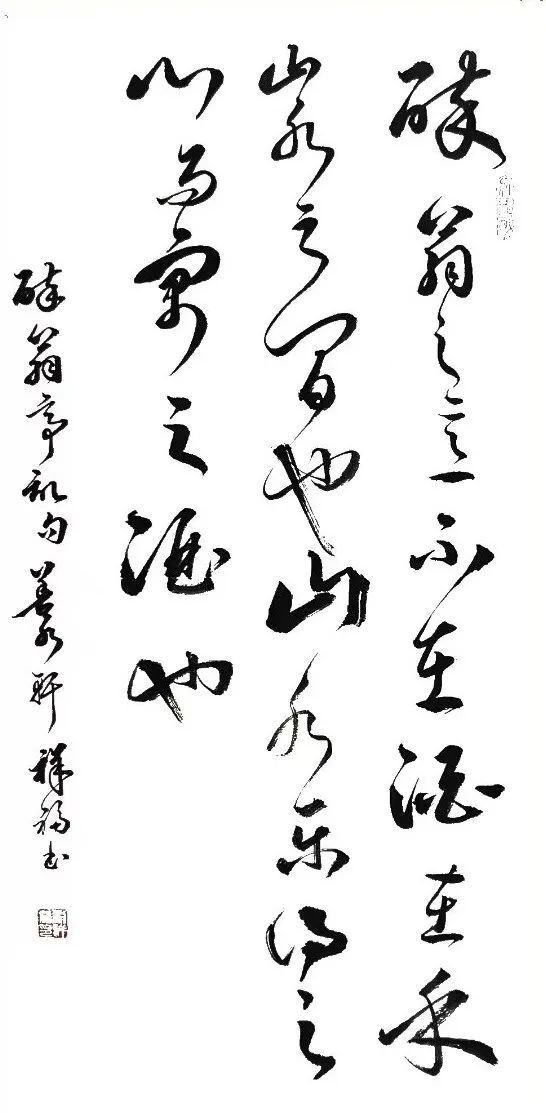 醉翁之意不在酒在乎
山水之间也山水乐得之
心而寓之酒也
醉翁亭记句善水轩祥福书